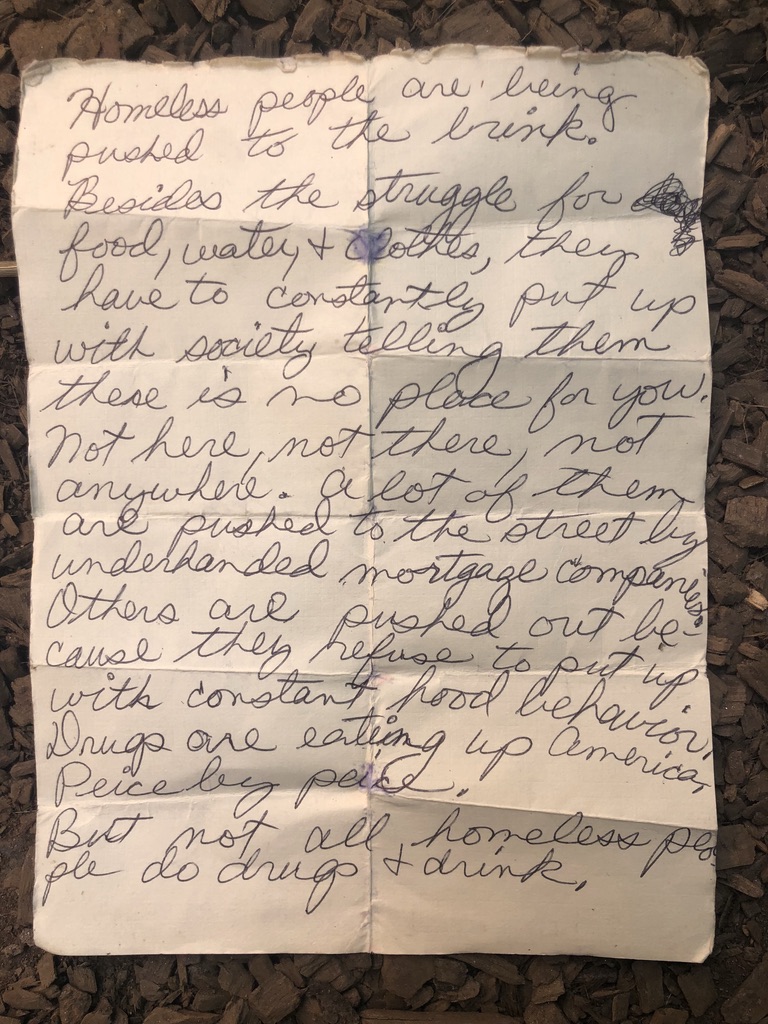 Homeless people are being
pushed to the brink.
Besides the struggle for
food, water, + clothes, they
have to constantly put up
with society telling them
there is no place for you.
Not here, not there, not
anywhere. A lot of them
are pushed to the street by
underhanded mortgage companies.
Others are pushed out be-
cause they refuse to put up
with constant hood behavior.
Drugs are eating up America,
Peice by peice.
But not all homeless peo
ple do drugs + drink.